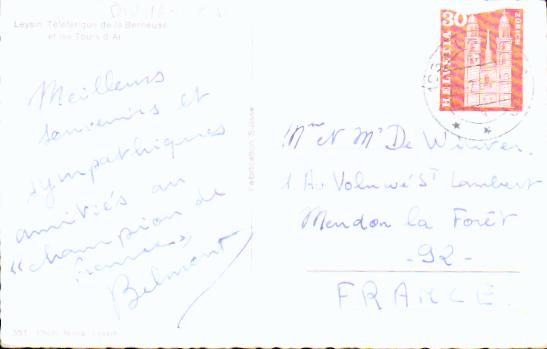 Leysin Téléférique de la Berneuse
et les Tours d'Aï
Meilleurs
souvenirs et
sympathiques
amitiés au
«champion de
france»
Belmont
Fabrication Suisse
30
HELVETIA
ZÜRICH
Mme et Mr De Winter.
1 Av Voluwé St Lambert
Mendon la Forêt
-92-
FRANCE.